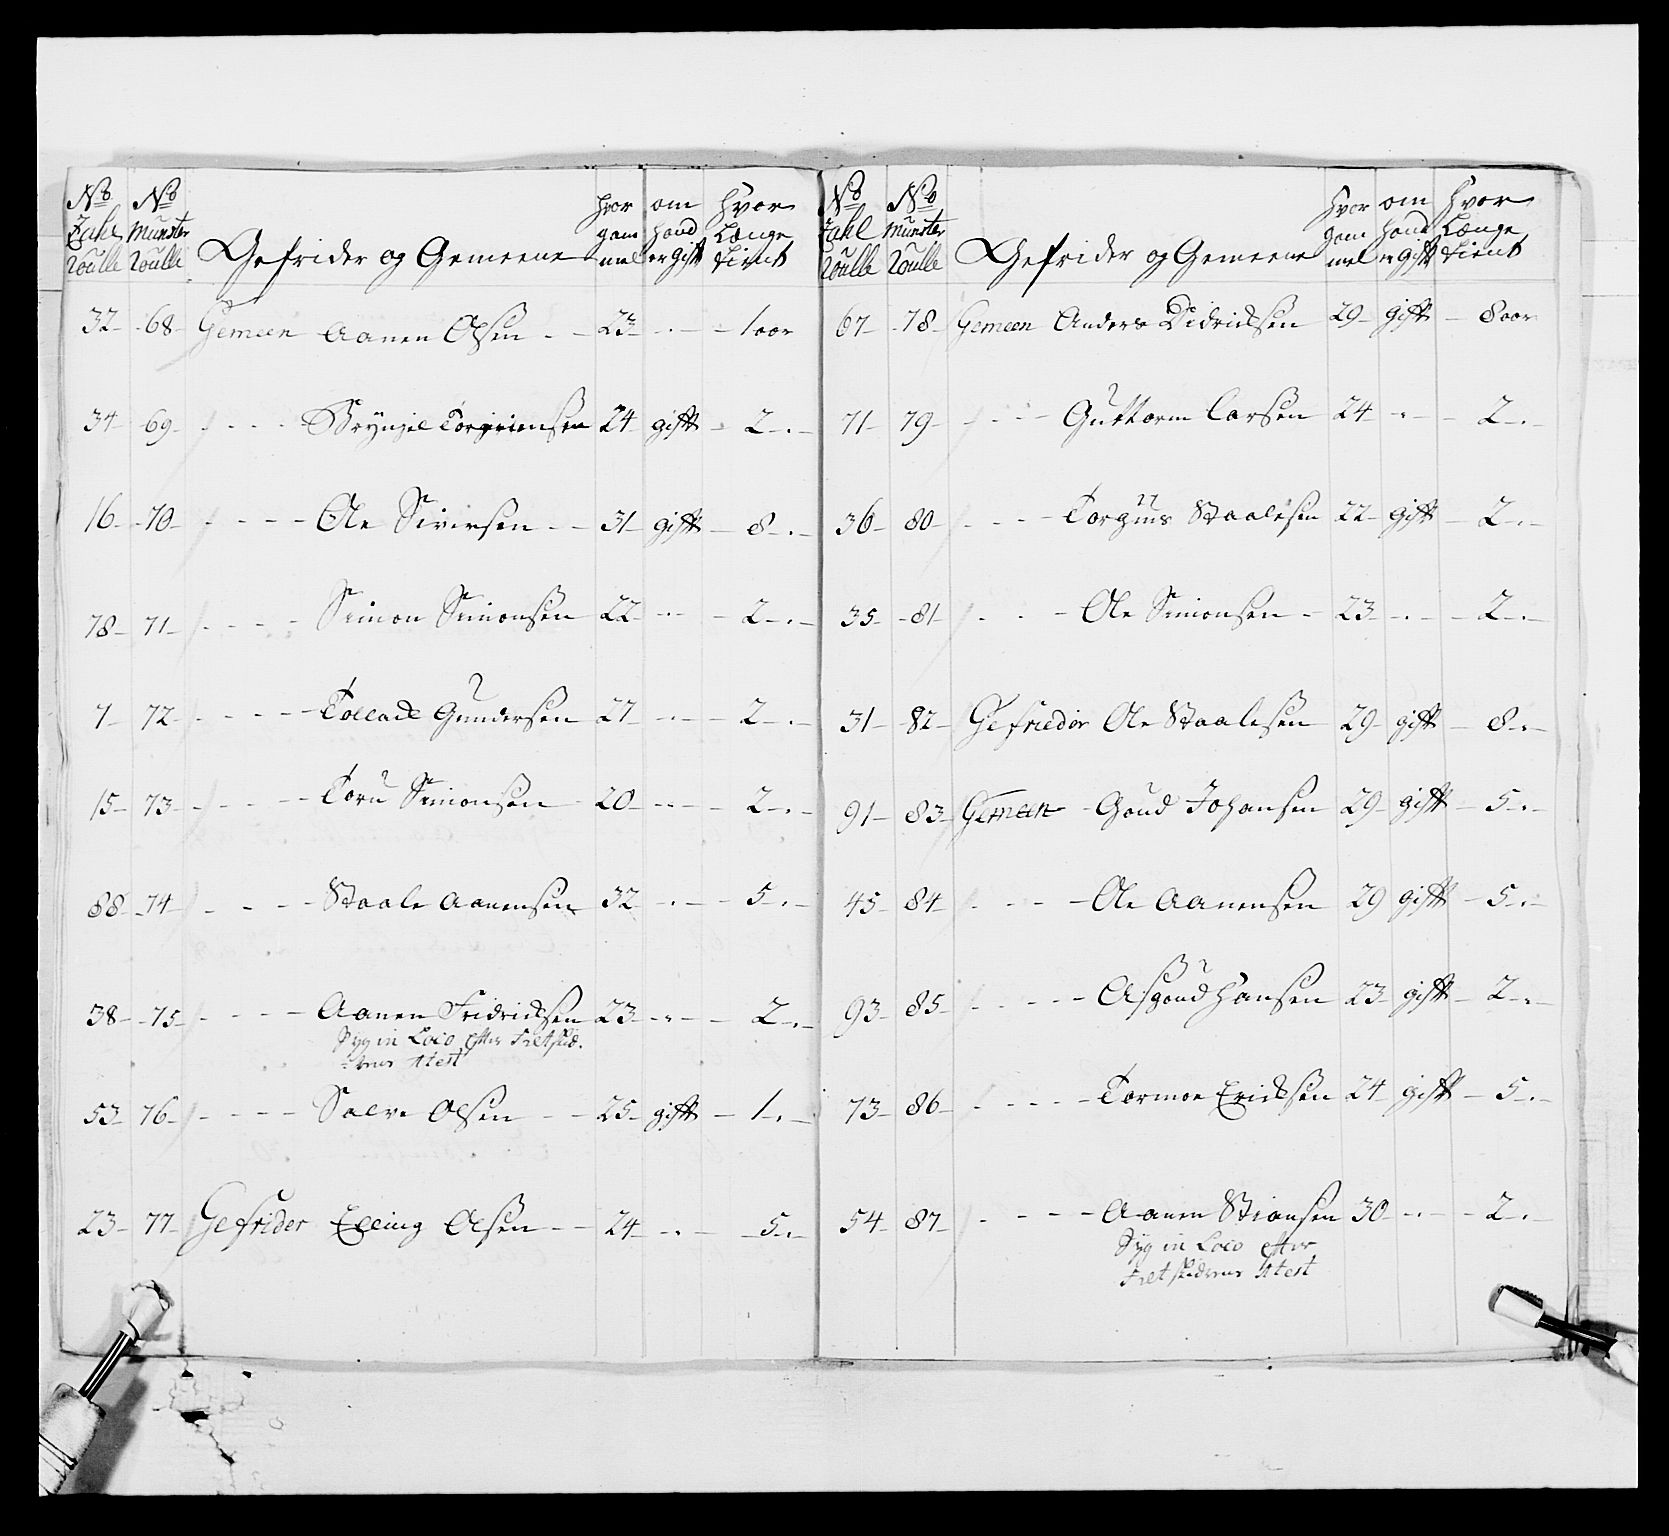 No Zahl Roulle | No Munster Roulle | Gefrider og Gemeene | hvor gam mel | om hand er Gift | Hvor Længe tient
32 - 68 - Gemeen Aanen Olsen - - 23 - . - - 1 aar
34 - 69 - / - - - Brynjel Torgriemsen 24 gift - 2 - . -
16 - 70 - / - - - Ole Siversen - - 31 gift - 8 - . -
78 - 71 - / - - - Simon Simonsen 22 - . - - 2 - . -
7 - 72 - - - - Tollack Gundersen 27 - . - - 2 - . -
15 - 73 - / - - - Toru Simonsen 20 - . - - 2 - . -
88 - 74 - / - - - Staale Aanensen 32 - . - - 5 - . -
38 - 75 - / - - - Aanen Fridricksen 23 - . - - 2 - . -
Syg in Loco efter Feltskiæ-
-rens Atest
53 - 76 - / - - - Salve Olsen - - 25 - gift - 1 - . -
23 - 77 - Gefrider Elling Olsen - - 24 - . - - 5 - . -
No Zahl Roulle | No Munster Roulle | Gefrider og Gemeene | Hvor gam mel | om hand er Gift | Hvor Længe tient
67 - 78 - Gemeen Anders Didricksen 29 - gift - 8 aar
71 - 79 - / - - Guttorm Larsen 24 - . - 2 - . -
36 - 80 - / - - - Torgius Staalesen 22 - gift - 2 - . -
35 - 81 - / - - - Ole Simonsen - 23 - . - - 2 - . -
31 - 82 - Gefrieder Ole Staalesen 29 - gift - 8 - . -
91 - 83 - Gemeen - Goud Johansen 29 gift - 5 - . -
45 - 84 - / - - - Ole Aanensen 29 gift - 5 - . -
93 - 85 - / - - - Asgoud Hansen 23 gift - 2 - . -
73 - 86 - / - - - Tormoe Ericksen 24 gift - 5 - . -
54 - 87 - / - - - Aanen Stiansen 30 - . - - 2 - . -
Syg in Loco efter
Feltskiærens Atest